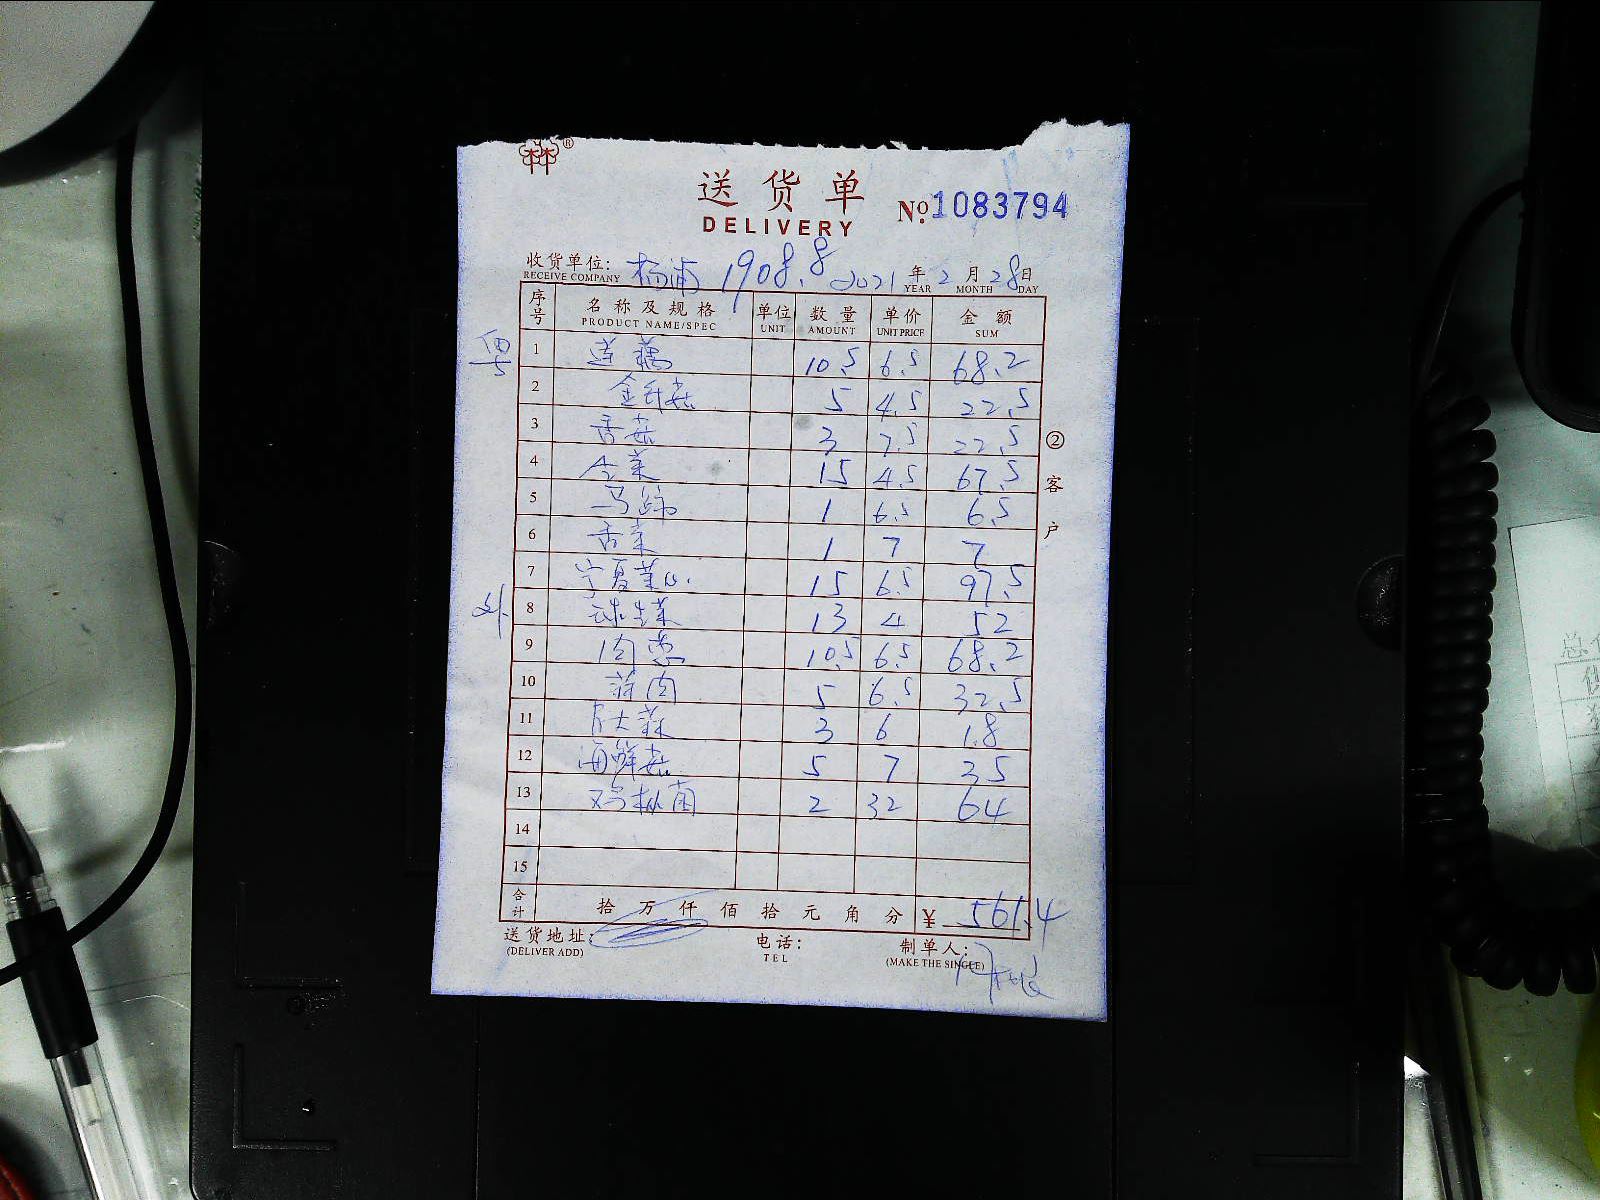 林®
送货单
DELIVERY
№ 1083794
收货单位: 杨浦 1908.8 2021年2月28日
RECEIVE COMPANY YEAR MONTH DAY
序号 名称及规格 单位 数量 单价 金额
PRODUCT NAME/SPEC UNIT AMOUNT UNIT PRICE SUM
1 莲藕 10.5 6.5 68.2
2 金针菇 5 4.5 22.5
3 香菇 3 7.5 22.5
4 生菜 15 4.5 67.5
5 马蹄 1 6.5 6.5
6 香菜 1 7 7
7 宁夏菜心 15 6.5 97.5
8 球生菜 13 4 52
9 肉葱 10.5 6.5 68.2
10 蒜肉 5 6.5 32.5
11 大蒜 3 6 1.8
12 海鲜菇 5 7 35
13 鸡枞菌 2 32 64
14
15
合计 拾万仟佰拾元角分 ¥ 561.4
②客户
送货地址: 电话: 制单人:
(DELIVER ADD) TEL (MAKE THE SINGLE)